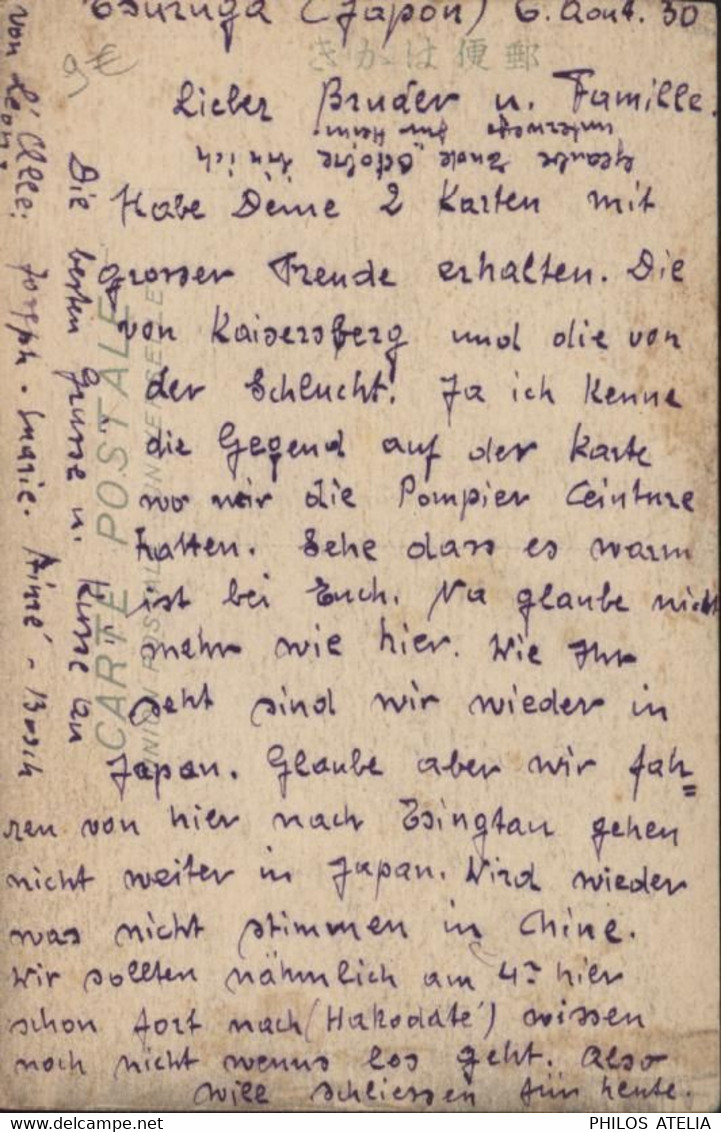 Tsuruga (Japon) 6. Aout. 30
9€
きかは便郵
Lieber Bruder u. Familie.
Glaube Ende "Octobre bin ich
unterwegs zur Heim!
Habe Deine 2 Karten mit
grosser Freude erhalten. Die
von Kaisersberg und die von
der Schlucht! Ja ich kenne
die Gegend auf der Karte
wo wir die Pompier Ceinture
hatten. Sehe dass es warm
ist bei Euch. Na glaube nicht
mehr wie hier. Wie Ihr
seht sind wir wieder in
Japan. Glaube aber wir fah=
ren von hier nach Tsingtau gehen
nicht weiter in Japan. Wird wieder
was nicht stimmen in Chine.
Wir sollten nähmlich am 4. hier
schon fort nach (Hakodaté) wissen
noch nicht wenns los geht. Also
will schliessen für heute.
Die besten Grusse u. Kusse an
L'Alle: Joseph. Marie. Aimé - Bosch
von Leon!
CARTE POSTALE
UNION POSTALE UNIVERSELLE
PHILOS ATELIA